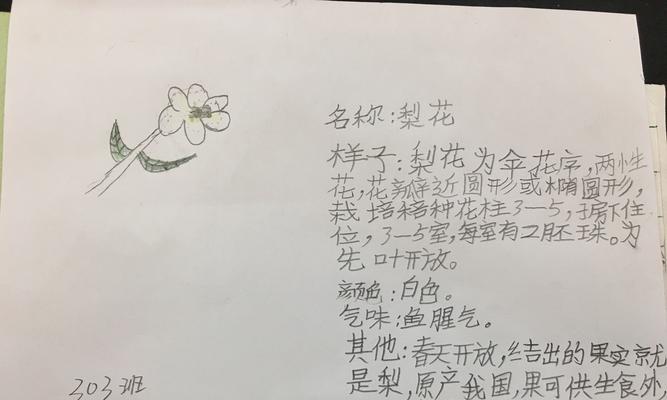 名称:梨花
样子:梨花为伞花序,两性
花,花瓣近圆形或椭圆形,
栽培种花柱3-5,子房下位
位,3-5室,每室有2胚珠。为
先叶开放。
颜色:白色。
气味:鱼腥气。
其他:春天开放,结出的果实就
是梨,原产我国,果可供生食外,
303班